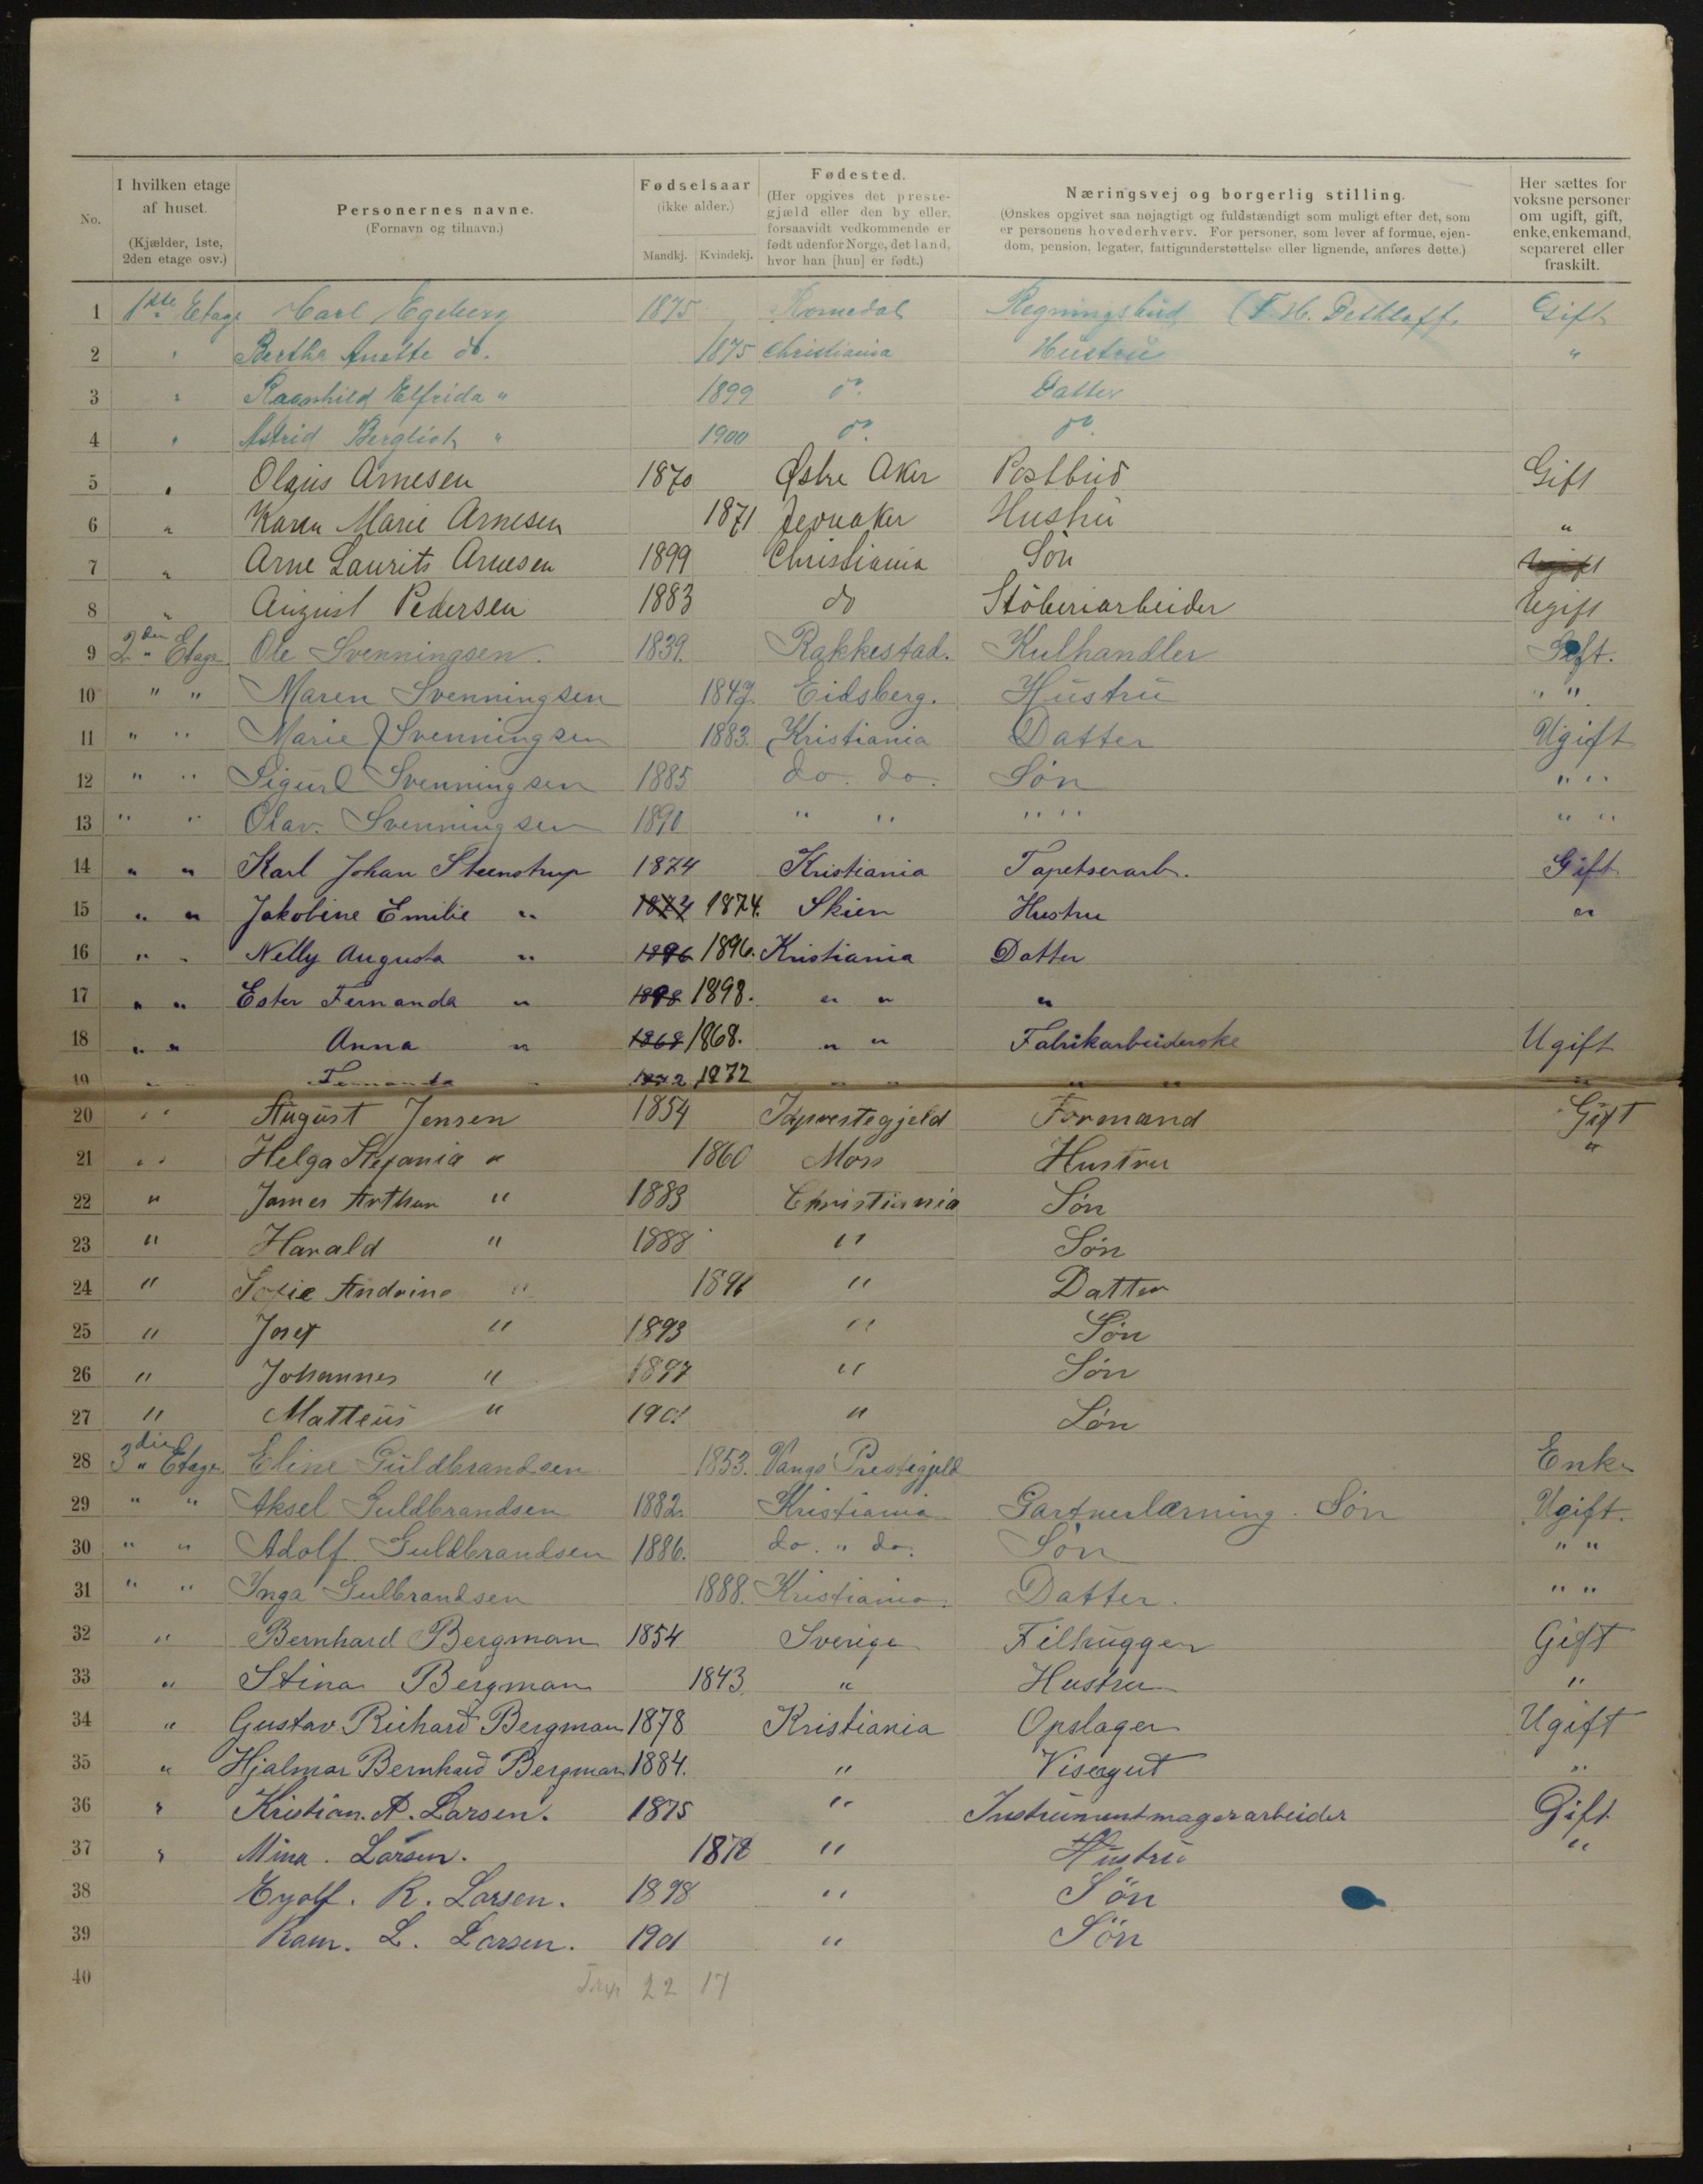 No. I hvilken etage af huset. (Kjælder, 1ste, 2den etage osv.) Personernes navne. (Fornavn og tilnavn.) Fødselsaar (ikke alder.) Mandkj. Kvindekj. Fødested. (Her opgives det prestegjæld eller den by eller, forsaavidt vedkommende er født udenfor Norge, det land, hvor han [hun] er født.) Næringsvej og borgerlig stilling. (Ønskes opgivet saa nøjagtigt og fuldstændigt som muligt efter det, som er personens hovederhverv. For personer, som lever af formue, ejendom, pension, legater, fattigunderstøttelse eller lignende, anføres dette.) Her sættes for voksne personer om ugift, gift, enke, enkemand, separeret eller fraskilt.
1 1ste Etage Carl Egeberg 1875 Romedal Regningsbud (F. H. Dethloff. Gift
2 " Bertha Anette do. 1875 Christiania Hustru "
3 " Ragnhild Elfrida " 1899 do. Datter
4 " Astrid Bergliot " 1900 do. do.
5 " Olaus Arnesen 1870 Østre Aker Postbud Gift
6 " Karen Marie Arnesen 1871 Jevnaker Hustru "
7 " Arne Laurits Arnesen 1899 Christiania Søn Ugift
8 " August Pedersen 1883 do Støberiarbeider Ugift
9 2den Etage Ole Svenningsen. 1839. Rakkestad. Kulhandler Gift.
10 " " Maren Svenningsen 1847. Eidsberg. Hustru " "
11 " " Marie J Svenningsen 1883. Kristiania Datter Ugift
12 " " Sigurd Svenningsen 1885 do. do. Søn " "
13 " " Olav. Svenningsen 1890 " " " " " "
14 " " Karl Johan Steenstrup 1874 Kristiania Tapetserarb. Gift
15 " " Jakobine Emilie " 1874 1874. Skien Hustru "
16 " " Nelly Augusta " 1896 1896. Kristiania Datter
17 " " Ester Fernanda " 1898 1898. " " "
18 " " Anna " 1868 1868. " " Fabrikarbeiderske Ugift
19 " " Fernanda " 1872 1872 " " " " "
20 " " August Jensen 1854 Idprestegjeld Formand Gift
21 " " Helga Stefania " 1860 Moss Hustru "
22 " James Arthur " 1883 Christiania Søn
23 " Harald " 1888 " Søn
24 " Sofie Andrine " 1891 " Datter
25 " Josef " 1893 " Søn
26 " Johannes " 1897 " Søn
27 " Matteus " 1901 " Søn
28 3die Etage. Eline Guldbrandsen 1853. Vangs Prestegjeld Enke
29 " " Aksel Guldbrandsen 1882. Kristiania Gartnerlærning. Søn Ugift.
30 " " Adolf Guldbrandsen 1886. do. " do. Søn " "
31 " " Inga Gulbrandsen 1888. Kristiania. Datter. " "
32 " Bernhard Bergman 1854 Sverige Filhugger Gift
33 " Stina Bergman 1843. " Hustru "
34 " Gustav Richard Bergman 1878 Kristiania Opslager Ugift
35 " Hjalmar Bernhard Bergman 1884. " Visergut "
36 " Kristian. A. Larsen. 1875 " Instrumentmagerarbeider Gift
37 " Mina. Larsen. 1878 " Hustru "
38 Eyolf. R. Larsen. 1898 " Søn
39 L. Larsen. 1901 " Søn
40 22 17